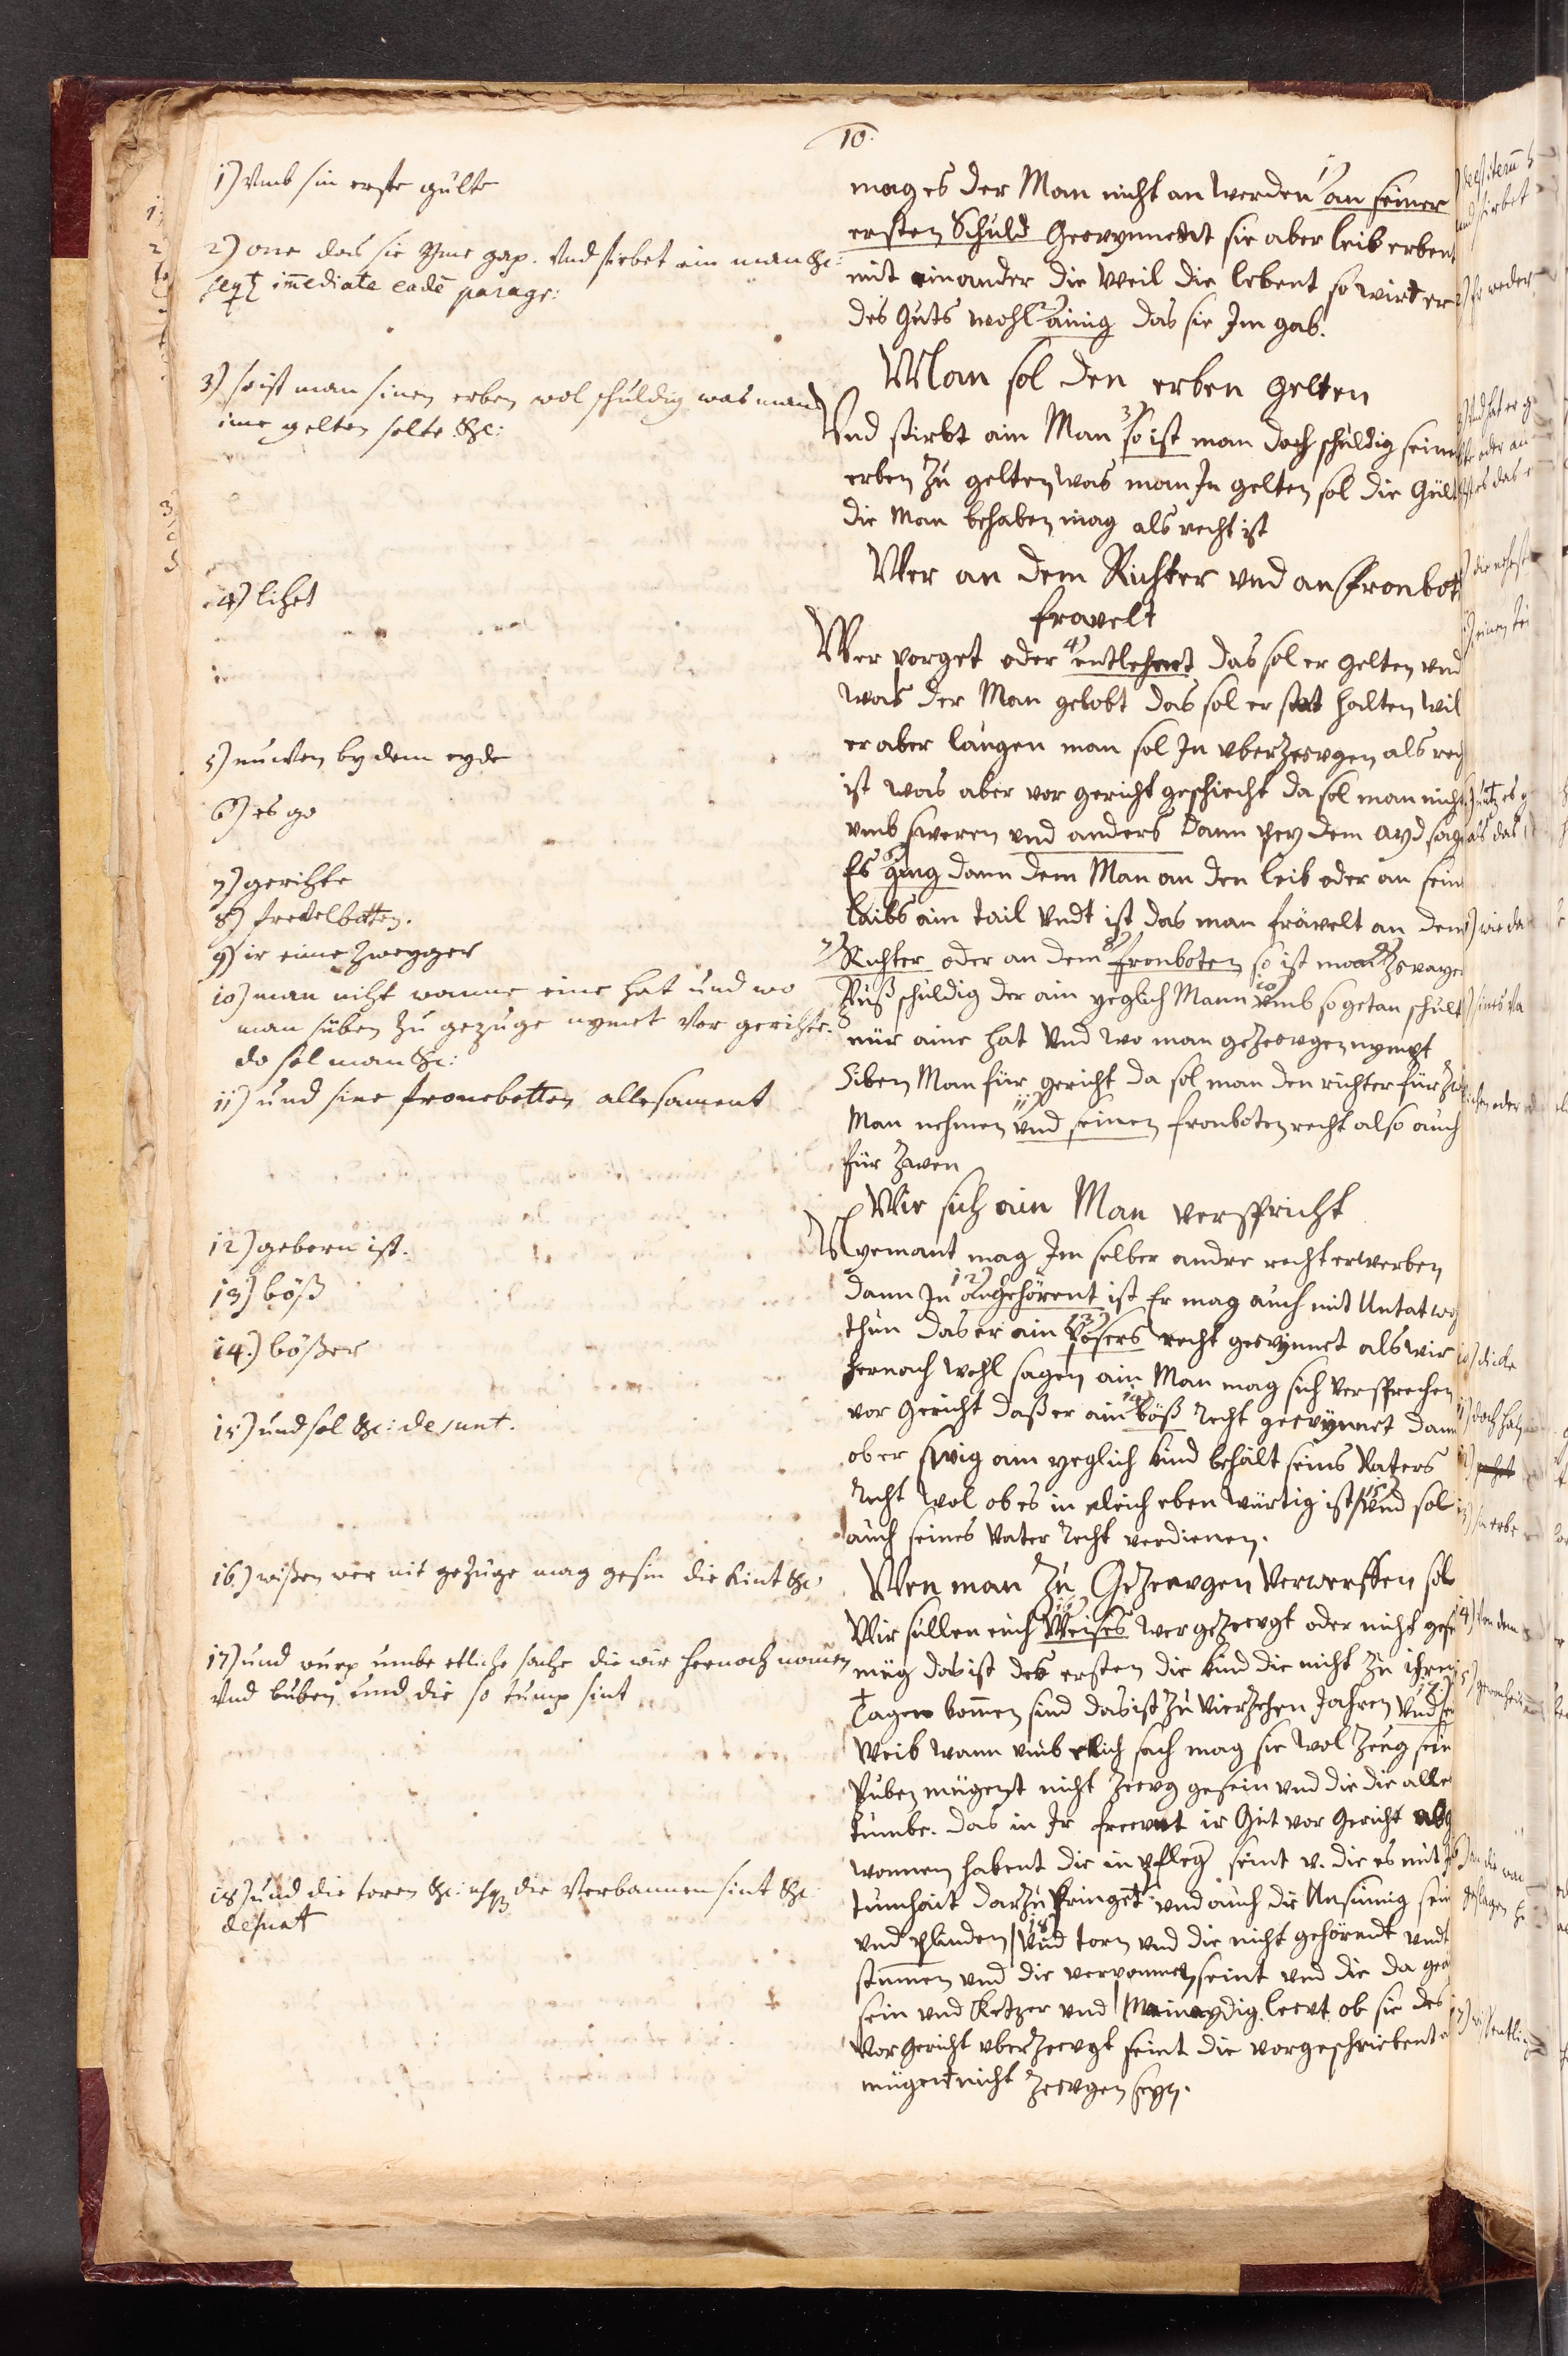 10.
1) Umb sin erste gulte
2) one das sie yme gap. Und stirbet ein man &c:
seqt im̄ediate eadē paragr:
3) so ist man sinen erben wol schuldig was man
ime gelten solte &c:
4) lihet
5) nuwen by dem eyde
6) es go
7) gerihte
8) frevelbotten.
9) ir eime zweyger
10) man niht wanne eine hat und wo
man süben zu gezuge nymet vor gerihte.
do sol man &c:
11) und sine fronebotten allesament
12) geborn ist.
13) böß
14.) bößer
15) und sol &c: desunt.
16) wißen wer nit gezüge mag gesin die kint &c
17) und wurp umbe etliche sache die wir hernoch nom̄en
und buben und die so tump sint
18) und die toren &c: usq die verbannen sint &c
desunt
mag es der Man nicht an werden 1) an seiner
ersten Schuld Gewynnent sie aber leib erben
mit einander die weil die lebent so wirt er
des Guts wohl 2) ainig das sie Im gab.
Man sol den erben gelten
Und stirbt ain Man 3) so ist man doch schuldig seinen
erben zu gelten was man In gelten sol die Gült
die Man behaben mag als recht ist
Wer an dem Richter und an fronbot
fravelt
Wer porget oder 4) entlehent das sol er gelten und
was der Man gelobt das sol er stat halten wil
er aber laugen man sol In uberzewgen als rech
ist was aber vor gericht geschiecht da sol man nicht
umb sweren und anders dann pey dem ayd sag
Es 6) ging dann dem Man an den leib oder an sein
laibs ain tail Undt ist das man frävelt an dem
7) Richter oder an dem 8) fronboten so ist man 9) zwayer
Puß schuldig der ain yeglich Mann 10) umb so getan schult
nür aine hat Und wo man gezewgen nympt
Siben Man für gericht da sol man den richter für zw
Man nehmen 11) und seinen fronboten recht also auch
für zwen
Wie sich ain Man verspricht
Nyemant mag Im selber andre recht erwerben
dann In 12) angehörent ist Er mag auch mit Untat wol
thun das er ain 13) posers recht gewynnet als wir
hernach wohl sagen ain Man mag sich versprechen
vor Gericht daß er ain 14) böß recht gewynnet dann
ob er swig ain yeglich kind behält seins Vaters
recht wol ob es in gleich eben würtig ist 15) und sol
auch seines Vater recht verdienen.
Wen man zu Gezewgen verwerffen sol
Wir sullen euch 16) Weisen wer gezewgt oder nicht gese
müg das ist des ersten die kind die nicht zu ihren
Tagen kom̄en sind das ist zu vierzehen Jahren 17) und sei
Weib wann umb etlich sach mag sie wol zeug sein
Puben mügent nicht zewg gesein und die die alle
tumbe. das in Ir frewnt ir Gut vor Gericht ab
wonnen habent die in pfleg seint v. die es mit
tumhait darzu pringet und auch die Unsinnig sein
und plinden 18) Und torn und die nicht gehörendt undt
stummen und die verpannen seint und die da
sein und Ketzer und Mainaydig lewt ob sie des
vor gericht uberzewgt seint die vorgeschriebent
mügent nicht zewgen seyn.